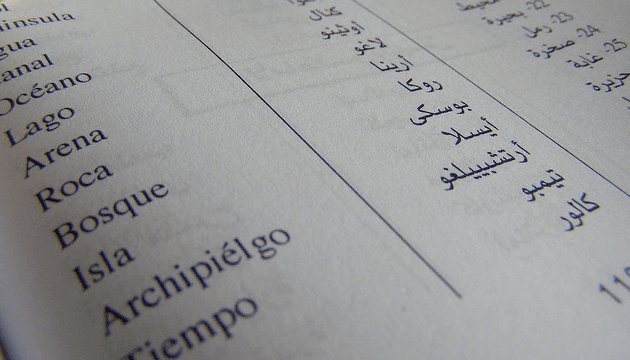 nínsula
gua
anal
Océano
Lago
Arena
Roca
Bosque
Isla
Archipiélgo
Tiempo
كنال
أوثينو
لاغو
أرينا
روكا
بوسكي
أيسلا
أرتشيبييلغو
تيمبو
كالور
22- بحيرة
23- رمل
24- صخرة
25- غابة
جزيرة